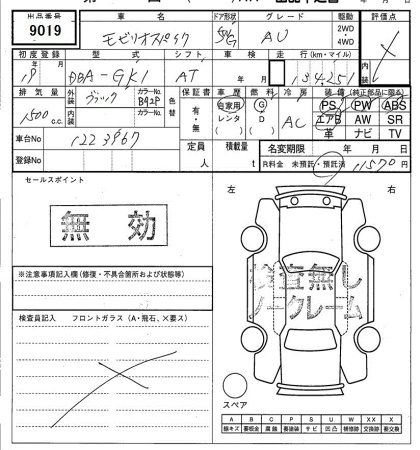 出品番号
9019
車名
モビリオスパイク
ドア形状
5D
G
グレード
AU
駆動
2WD
・
4WD
評価点
初度登録
19年 月
型式
DBA-GK1
シフト
AT
車検
年 月
走行(km・マイル)
134251
排気量
1500 c.c.
外装
内装
カラーNo.
B92P
カラーNo.
色替
保証書
有・無
車歴
自家用
レンタ
燃料
G
D
冷房
AC
装備(純正部品に限る)
PS PW ABS
エアB AW SR
革 ナビ TV
車台No
1223967
登録No
定員
人
積載量
t
名変期限 年 月 日
R料金 未預託・預託済 11570 円
セールスポイント
無効
※注意事項記入欄(修復・不具合箇所および状態等)
検査員記入 フロントガラス(A・飛石、×要ス)
左 右
検査無し
ノークレーム
スペア
A B C P S U W X XX
線キズ 要板金 腐蝕 要塗装 サビ 凹凸 補修跡 要交換